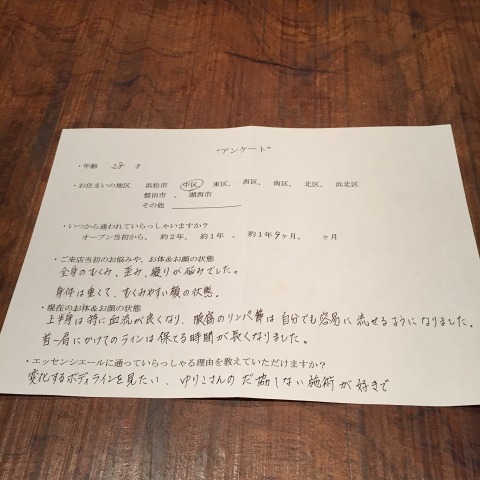 "アンケート"
・年齢 28 才
・お住まいの地区 浜松市 中区、 東区、 西区、 南区、 北区、 浜北区
磐田市 、 湖西市
その他
・いつから通われていらっしゃいますか?
オープン当初から、 約2年、 約1年 、 約1年9ヶ月、 ヶ月
・ご来店当初のお悩みや、お体&お顔の状態
全身のむくみ、歪み、凝りが悩みでした。
身体は重くて、むくみやすい顔の状態。
・現在のお体&お顔の状態
上半身は特に血流が良くなり、腋窩のリンパ節は自分でも容易に流せるようになりました。
首ー肩にかけてのラインは保てる時間が長くなりました。
・エッセンシエールに通っていらっしゃる理由を教えていただけますか?
変化するボディラインを見たい、ゆりこさんのだ協しない施術が好きで